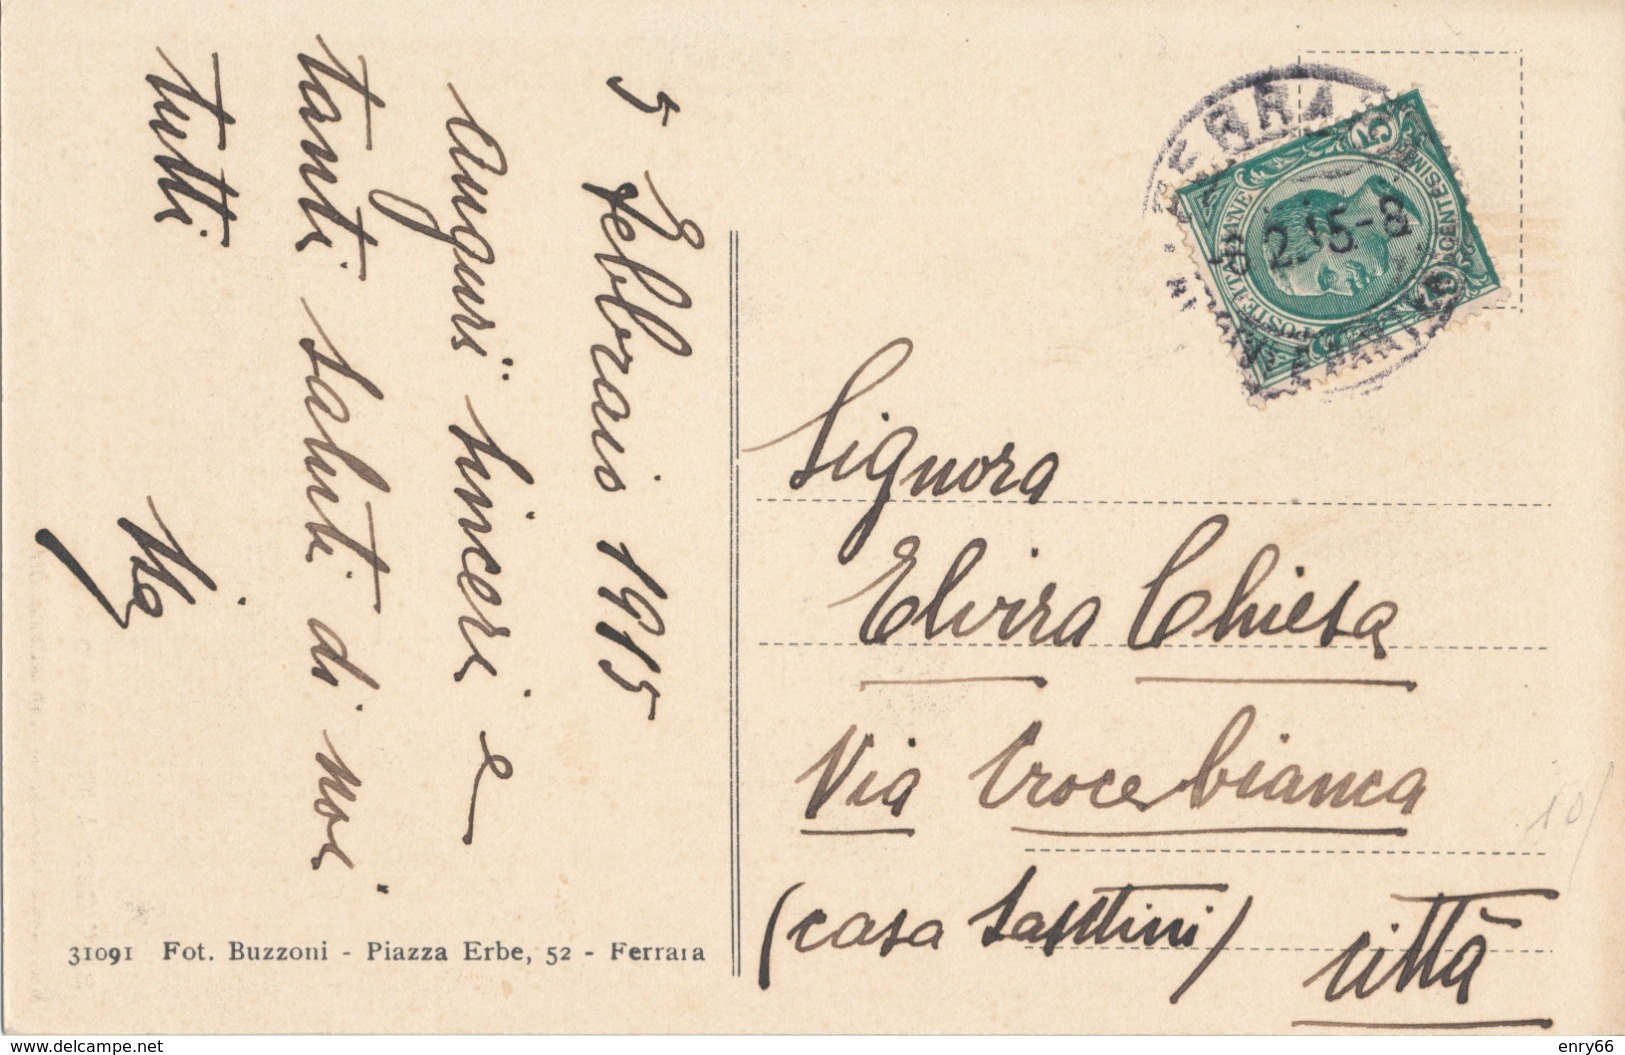 5 Febbraio 1915
Auguri sinceri e
tanti saluti di noi
tutti
Signora
Elvira Chiesa
Via Croce bianca
(casa Santini)
Città
31091 Fot. Buzzoni - Piazza Erbe, 52 - Ferrara
FERRARA
2.15-8
POSTE ITALIANE
CENTESIMI
15
10
www.delcampe.net
enry66